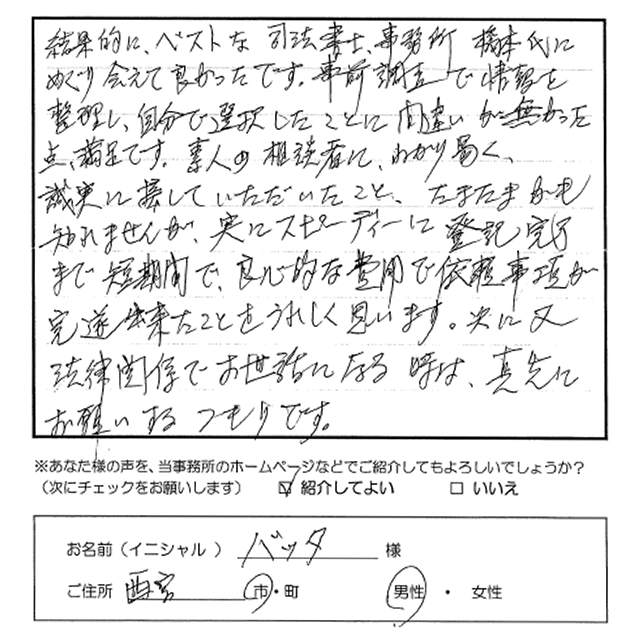 結果的に、ベストな 司法書士、事務所 橋本氏に
めぐり会えて良かったです。事前調査で情報を
整理し、自分で選択したことに間違いが無かった
点、満足です。素人の相談者に、わかり易く、
誠実に接していただいたこと、たまたまかも
知れませんが、実にスピーディーに登記完了
まで短期間で、良心的な費用で依頼事項が
完遂出来たことをうれしく思います。次に又
法律関係でお世話になる時は、真先に
お願いするつもりです。
※あなた様の声を、当事務所のホームページなどでご紹介してもよろしいでしょうか?
(次にチェックをお願いします) ☑ 紹介してよい □ いいえ
お名前(イニシャル) バッタ 様
ご住所 西宮 市・町 男性 ・ 女性